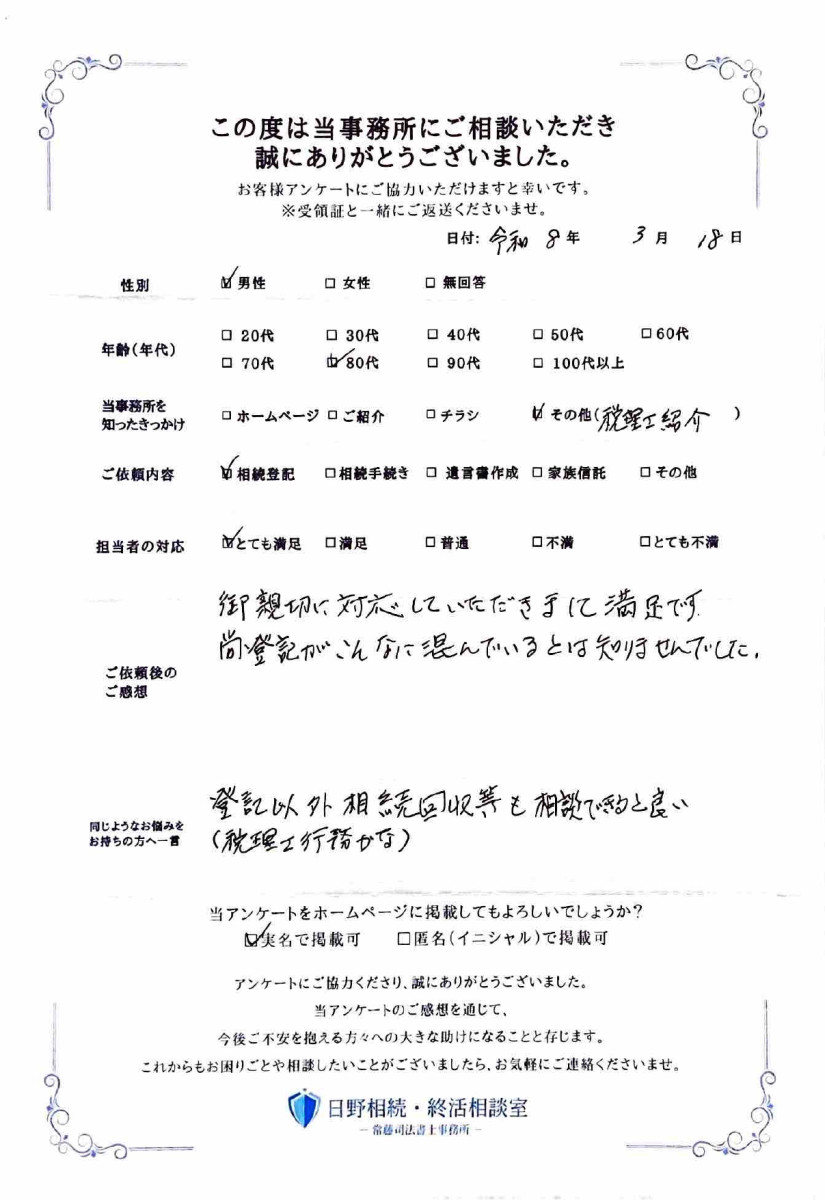 この度は当事務所にご相談いただき
誠にありがとうございました。
お客様アンケートにご協力いただけますと幸いです。
※受領証と一緒にご返送くださいませ。
日付: 令和 8年 3月 18日
性別 ☑男性 □女性 □無回答
年齢(年代) □20代 □30代 □40代 □50代 □60代
□70代 ☑80代 □90代 □100代以上
当事務所を
知ったきっかけ □ホームページ □ご紹介 □チラシ ☑その他(税理士紹介)
ご依頼内容 ☑相続登記 □相続手続き □遺言書作成 □家族信託 □その他
担当者の対応 ☑とても満足 □満足 □普通 □不満 □とても不満
ご依頼後の
ご感想
御親切に対応していただきまして満足です
尚登記がこんなに混んでいるとは知りませんでした.
同じようなお悩みを
お持ちの方へ一言
登記以外相続回収等も相談できると良い
(税理士行務かな)
当アンケートをホームページに掲載してもよろしいでしょうか?
☑実名で掲載可 □匿名(イニシャル)で掲載可
アンケートにご協力くださり、誠にありがとうございました。
当アンケートのご感想を通じて、
今後ご不安を抱える方々への大きな助けになることと存じます。
これからもお困りごとや相談したいことがございましたら、お気軽にご連絡くださいませ。
日野相続・終活相談室
– 常藤司法書士事務所 –